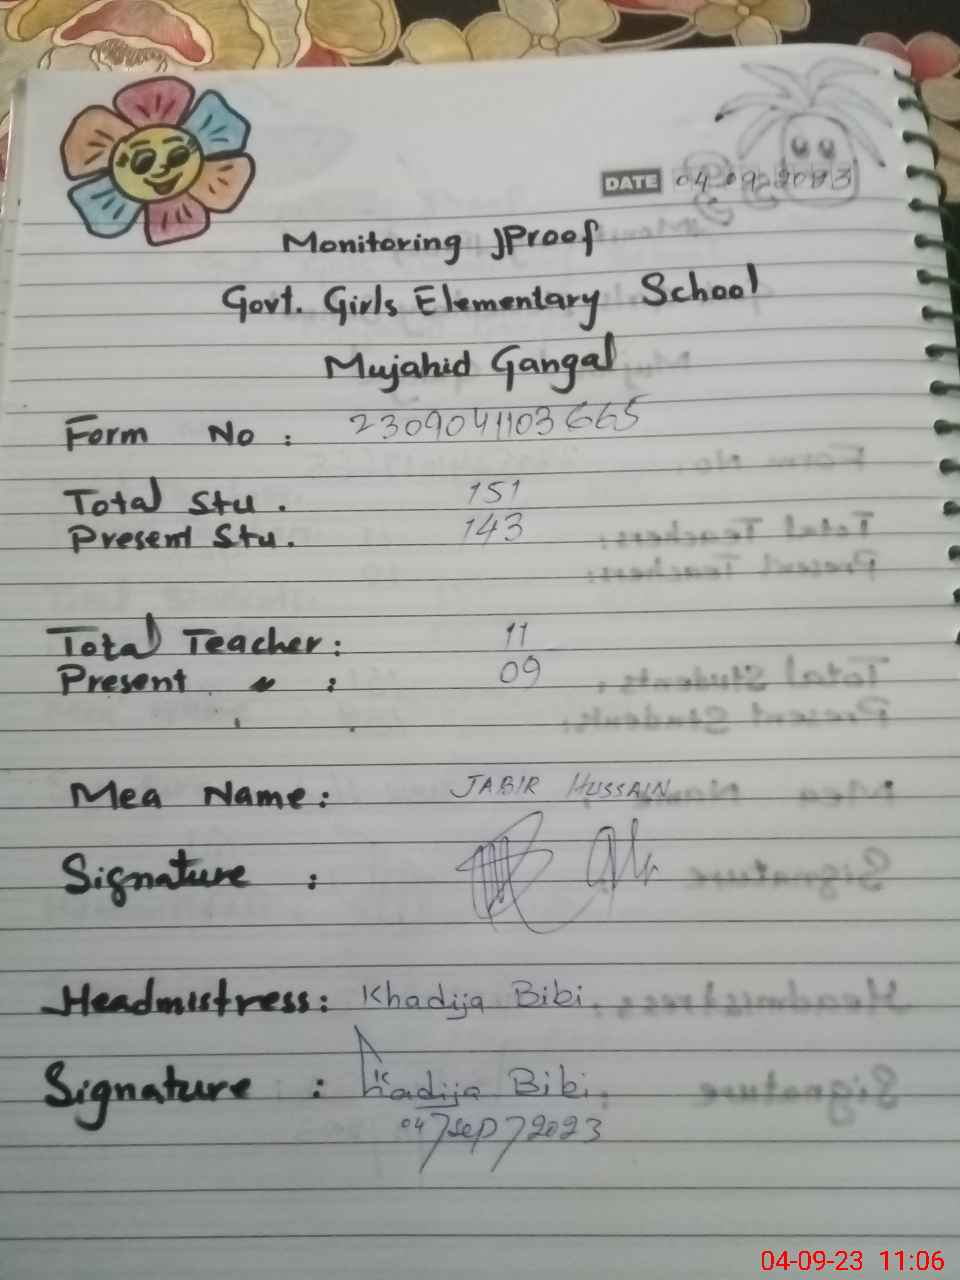 DATE 04.09.2023
Monitoring Proof
Govt. Girls Elementary School
Mujahid Gangal
Form No : 2309041103665
Total Stu . 151
Present Stu. 143
Total Teacher : 11
Present " : 09
Mea Name : JABIR HUSSAIN
Signature :
Headmistress : Khadija Bibi
Signature : Khadija Bibi
04/sep/2023
04-09-23 11:06